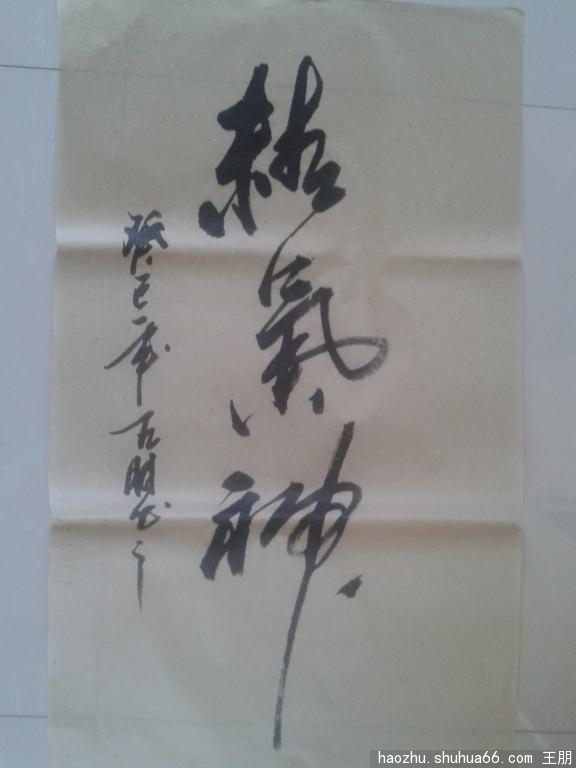 精氣神
癸巳年
haozhu.shuhua66.com 王朋